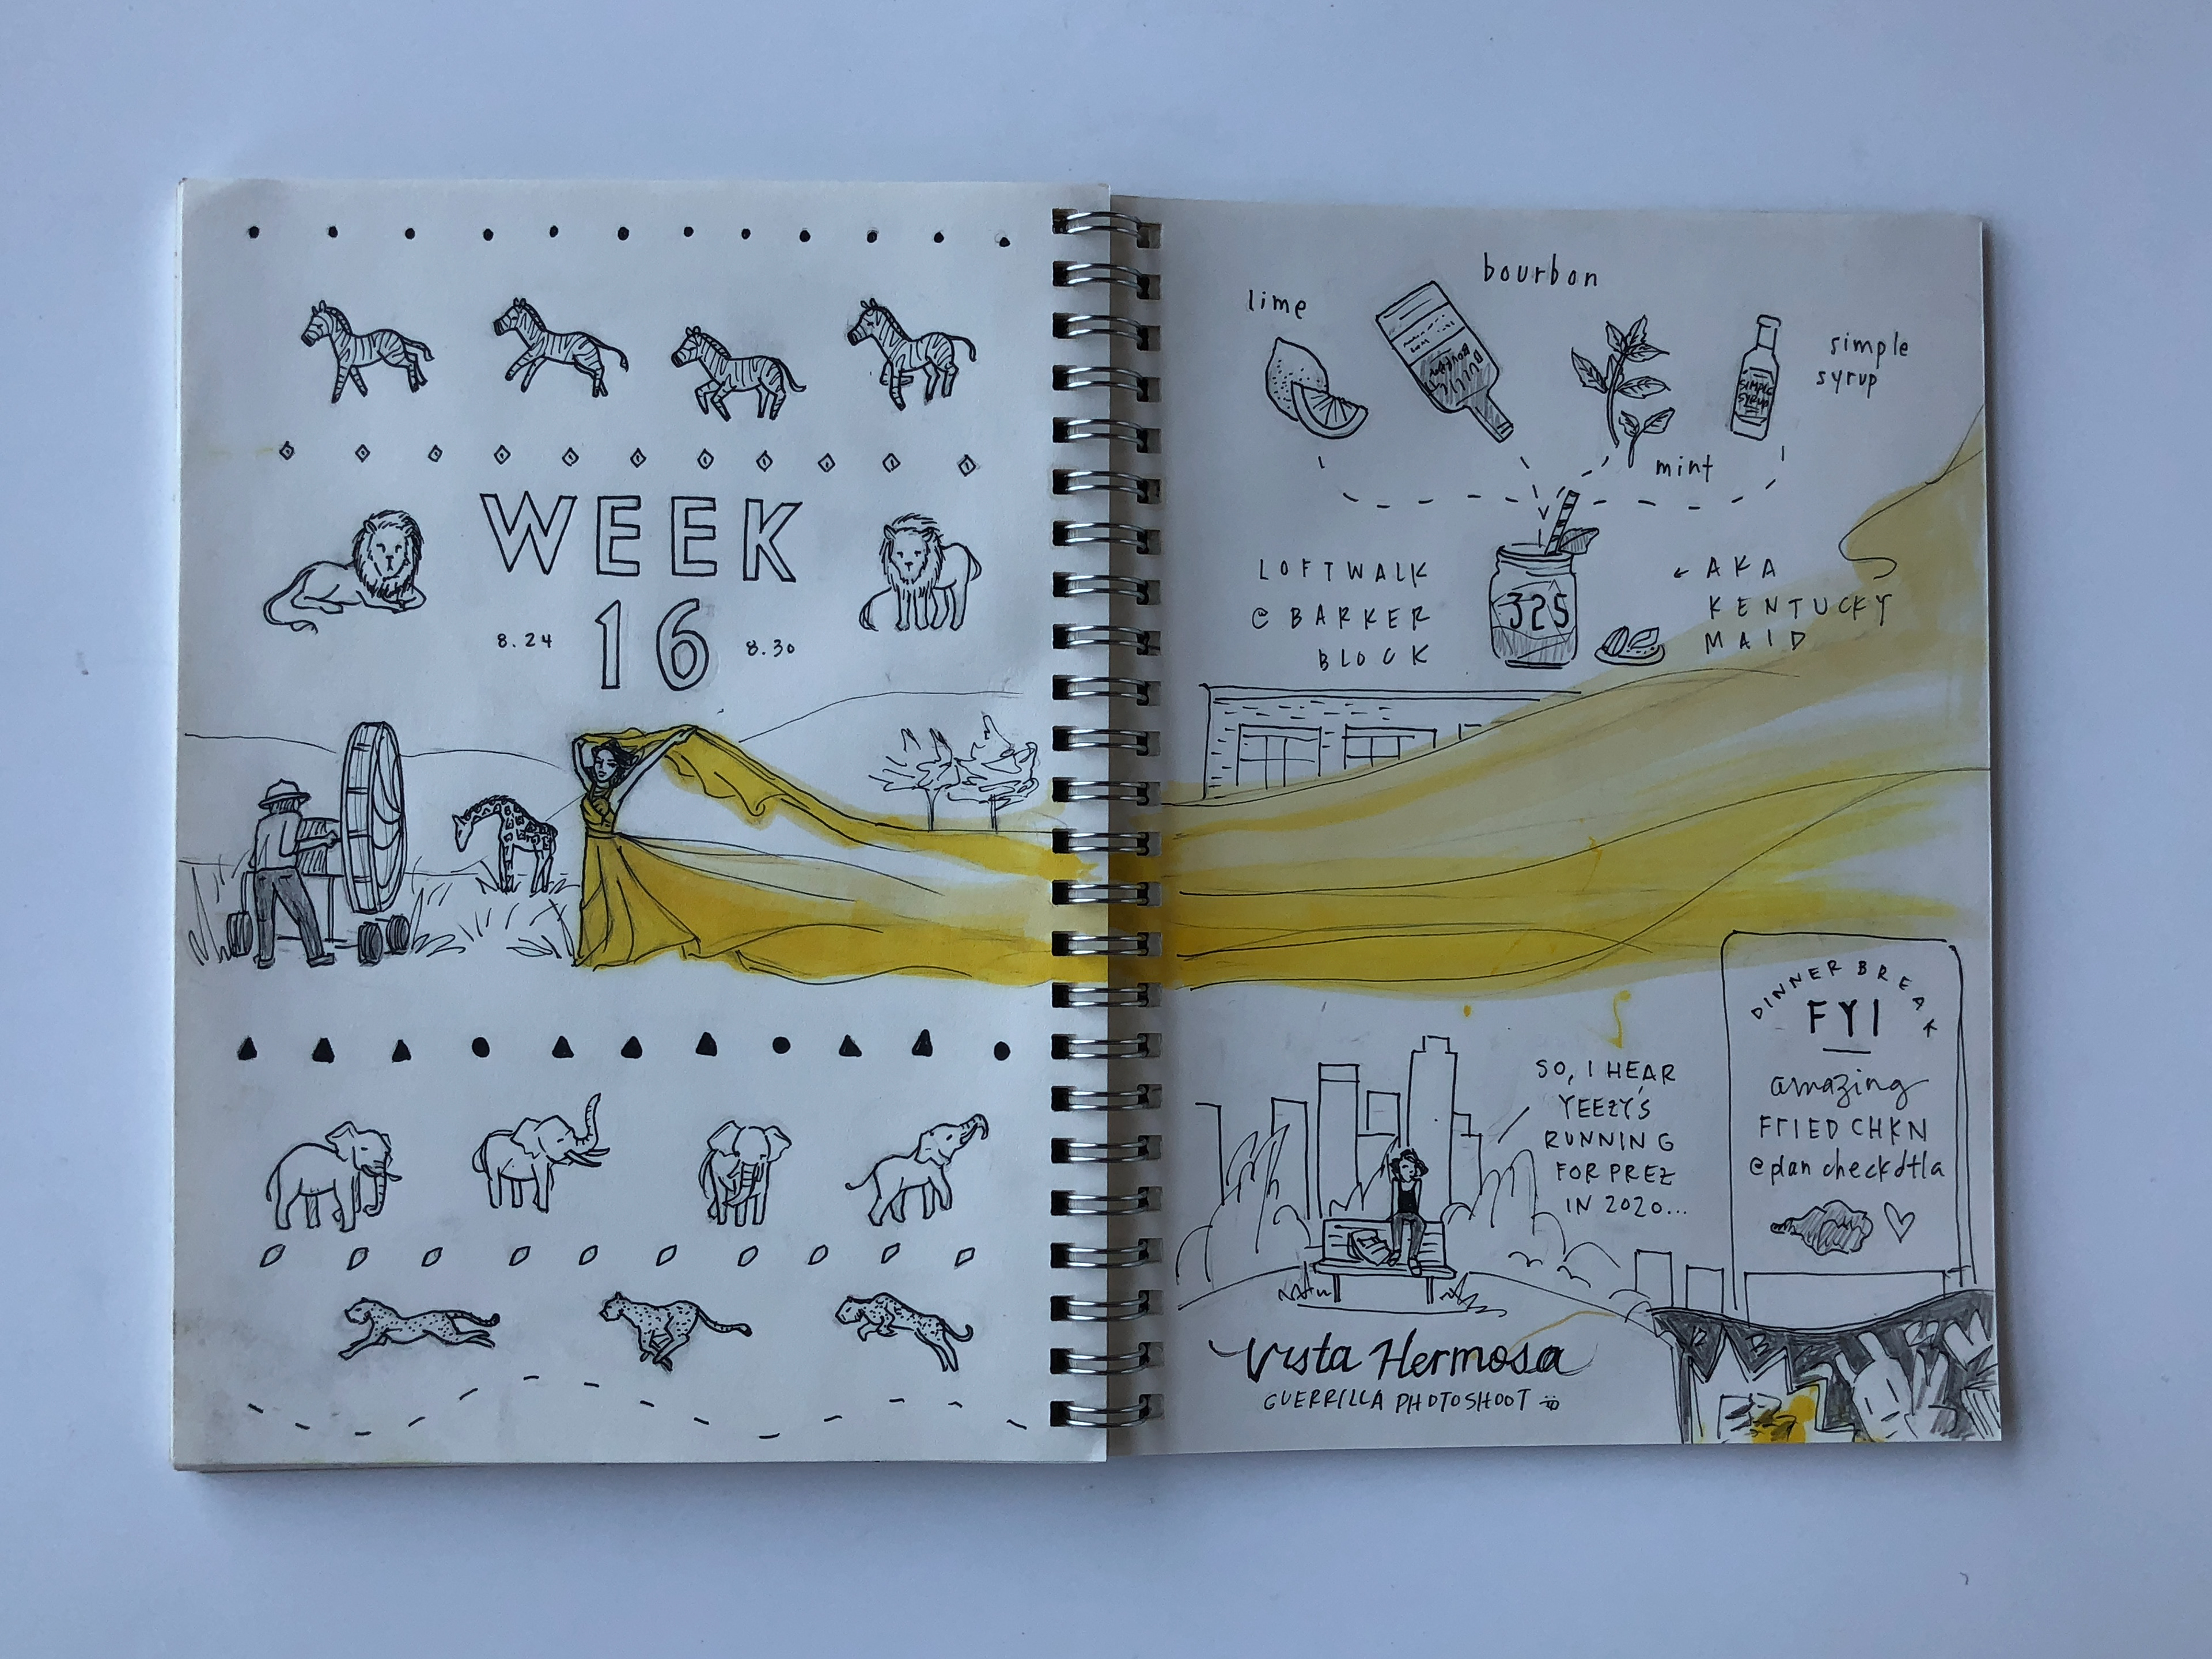 WEEK
16
8.24
8.30
bourbon
lime
simple
syrup
SIMPLE
SYRUP
mint
LOFTWALK
@ BARKER
BLOCK
325
← AKA
KENTUCKY
MAID
DINNER BREAK
FYI
amazing
FRIED CHKN
@plancheckdtla
SO, I HEAR
YEEZY'S
RUNNING
FOR PREZ
IN 2020...
Vista Hermosa
GUERRILLA PHOTOSHOOT